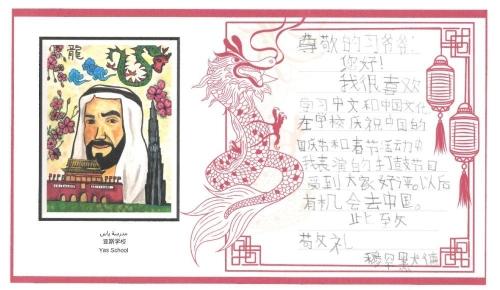 龍
مدرسة ياس
亚斯学校
Yas School
尊敬的习爷爷:
你好!
我很喜欢
学习中文和中国文化
在学校庆祝中国的
国庆节和春节活动中
我表演的打鼓节目
受到大家好评。以后
有机会去中国。
此致
敬礼
穆罕默德